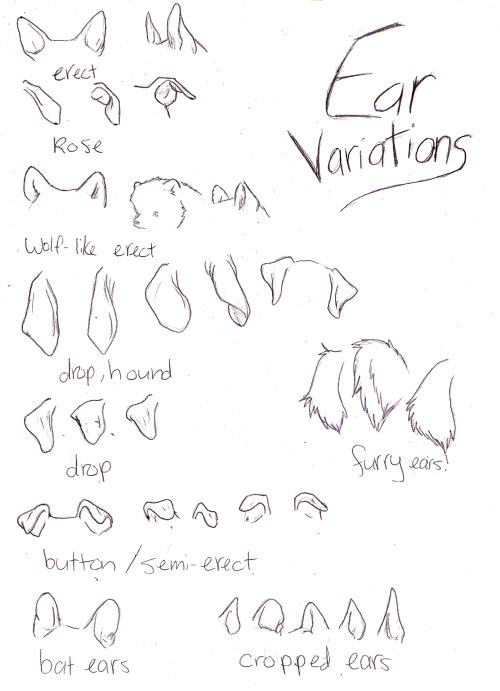 Ear
Variations
erect
Rose
Wolf-like erect
drop, hound
furry ears!
drop
button/semi-erect
bat ears
cropped ears